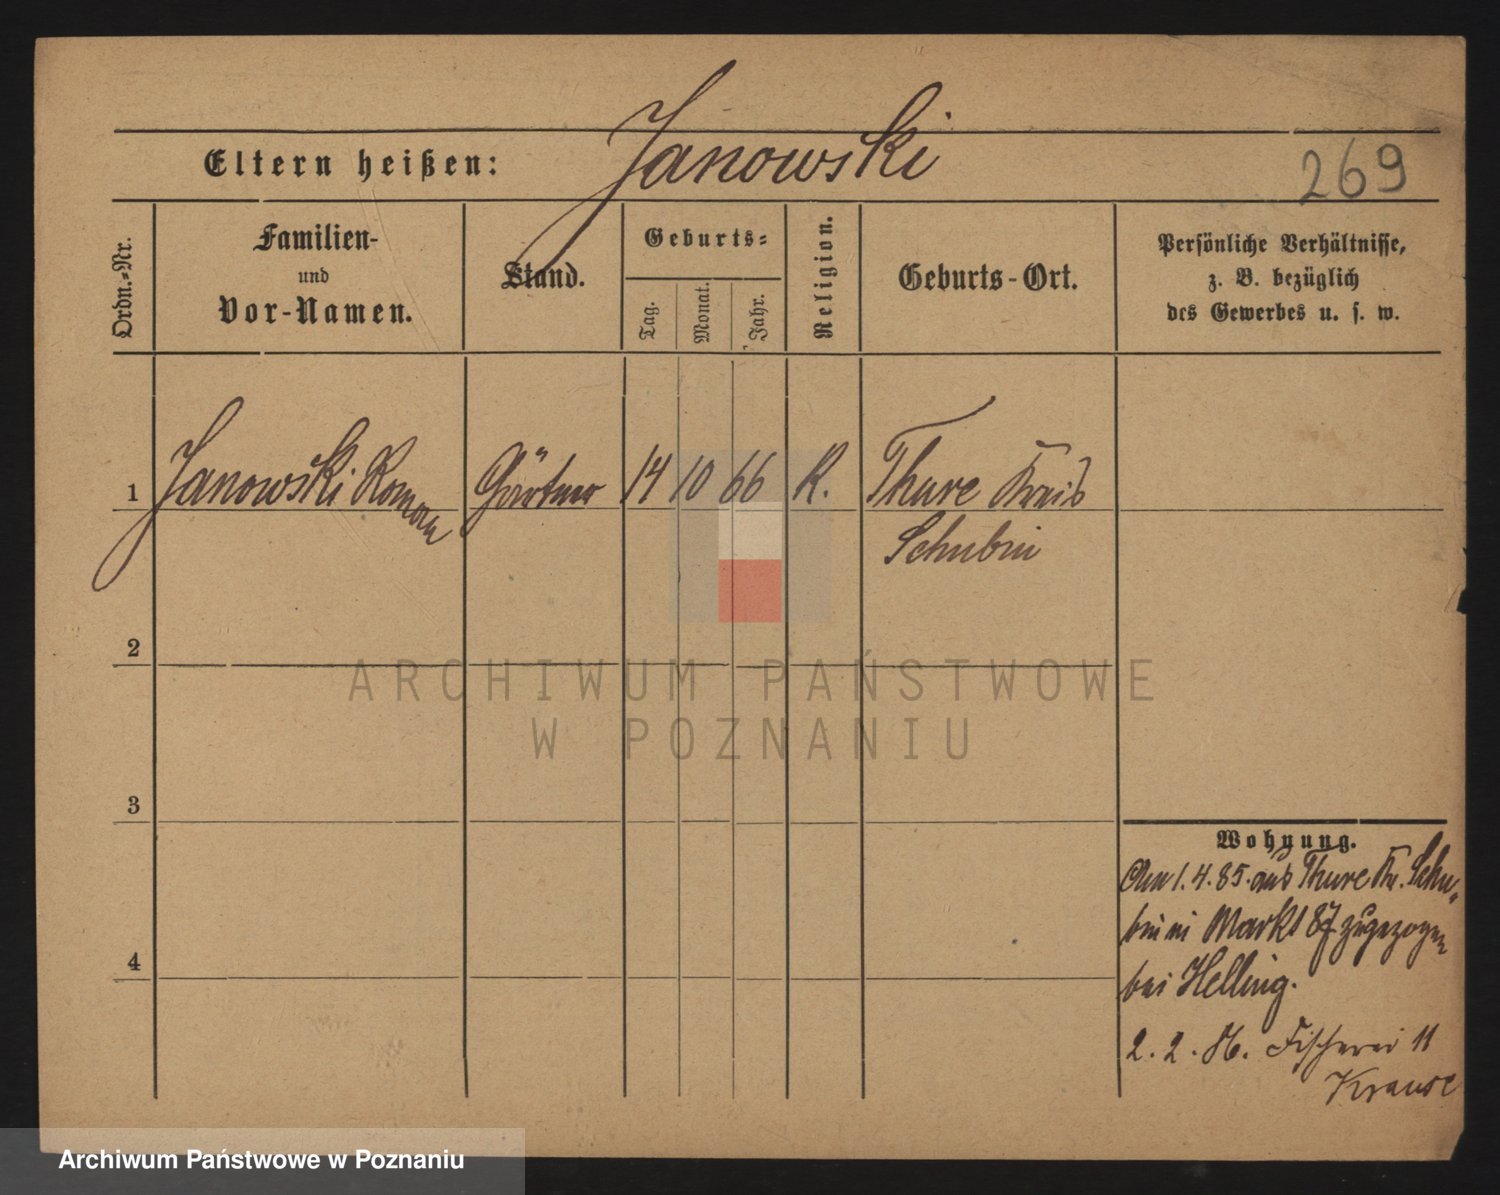 Janowski
Eltern heißen:
269
Ordn.-Nr.
Familien-
und
Vor-Namen.
Stand.
Geburts-
Tag.
Monat.
Jahr.
Religion.
Geburts-Ort.
Persönliche Verhältnisse,
z. B. bezüglich
des Gewerbes u. s. w.
1 Janowski Roman Gärtner 14 10 66 K. Thure Kreis
Schubin
2
ARCHIWUM PAŃSTWOWE
W POZNANIU
3
Wohnung.
Am 1.4.85. aus Thure Kr. Schu-
bin in Markt 87 zugezogen
bei Helling.
4
2. 2. 86. Fischerei 11
Krause
Archiwum Państwowe w Poznaniu